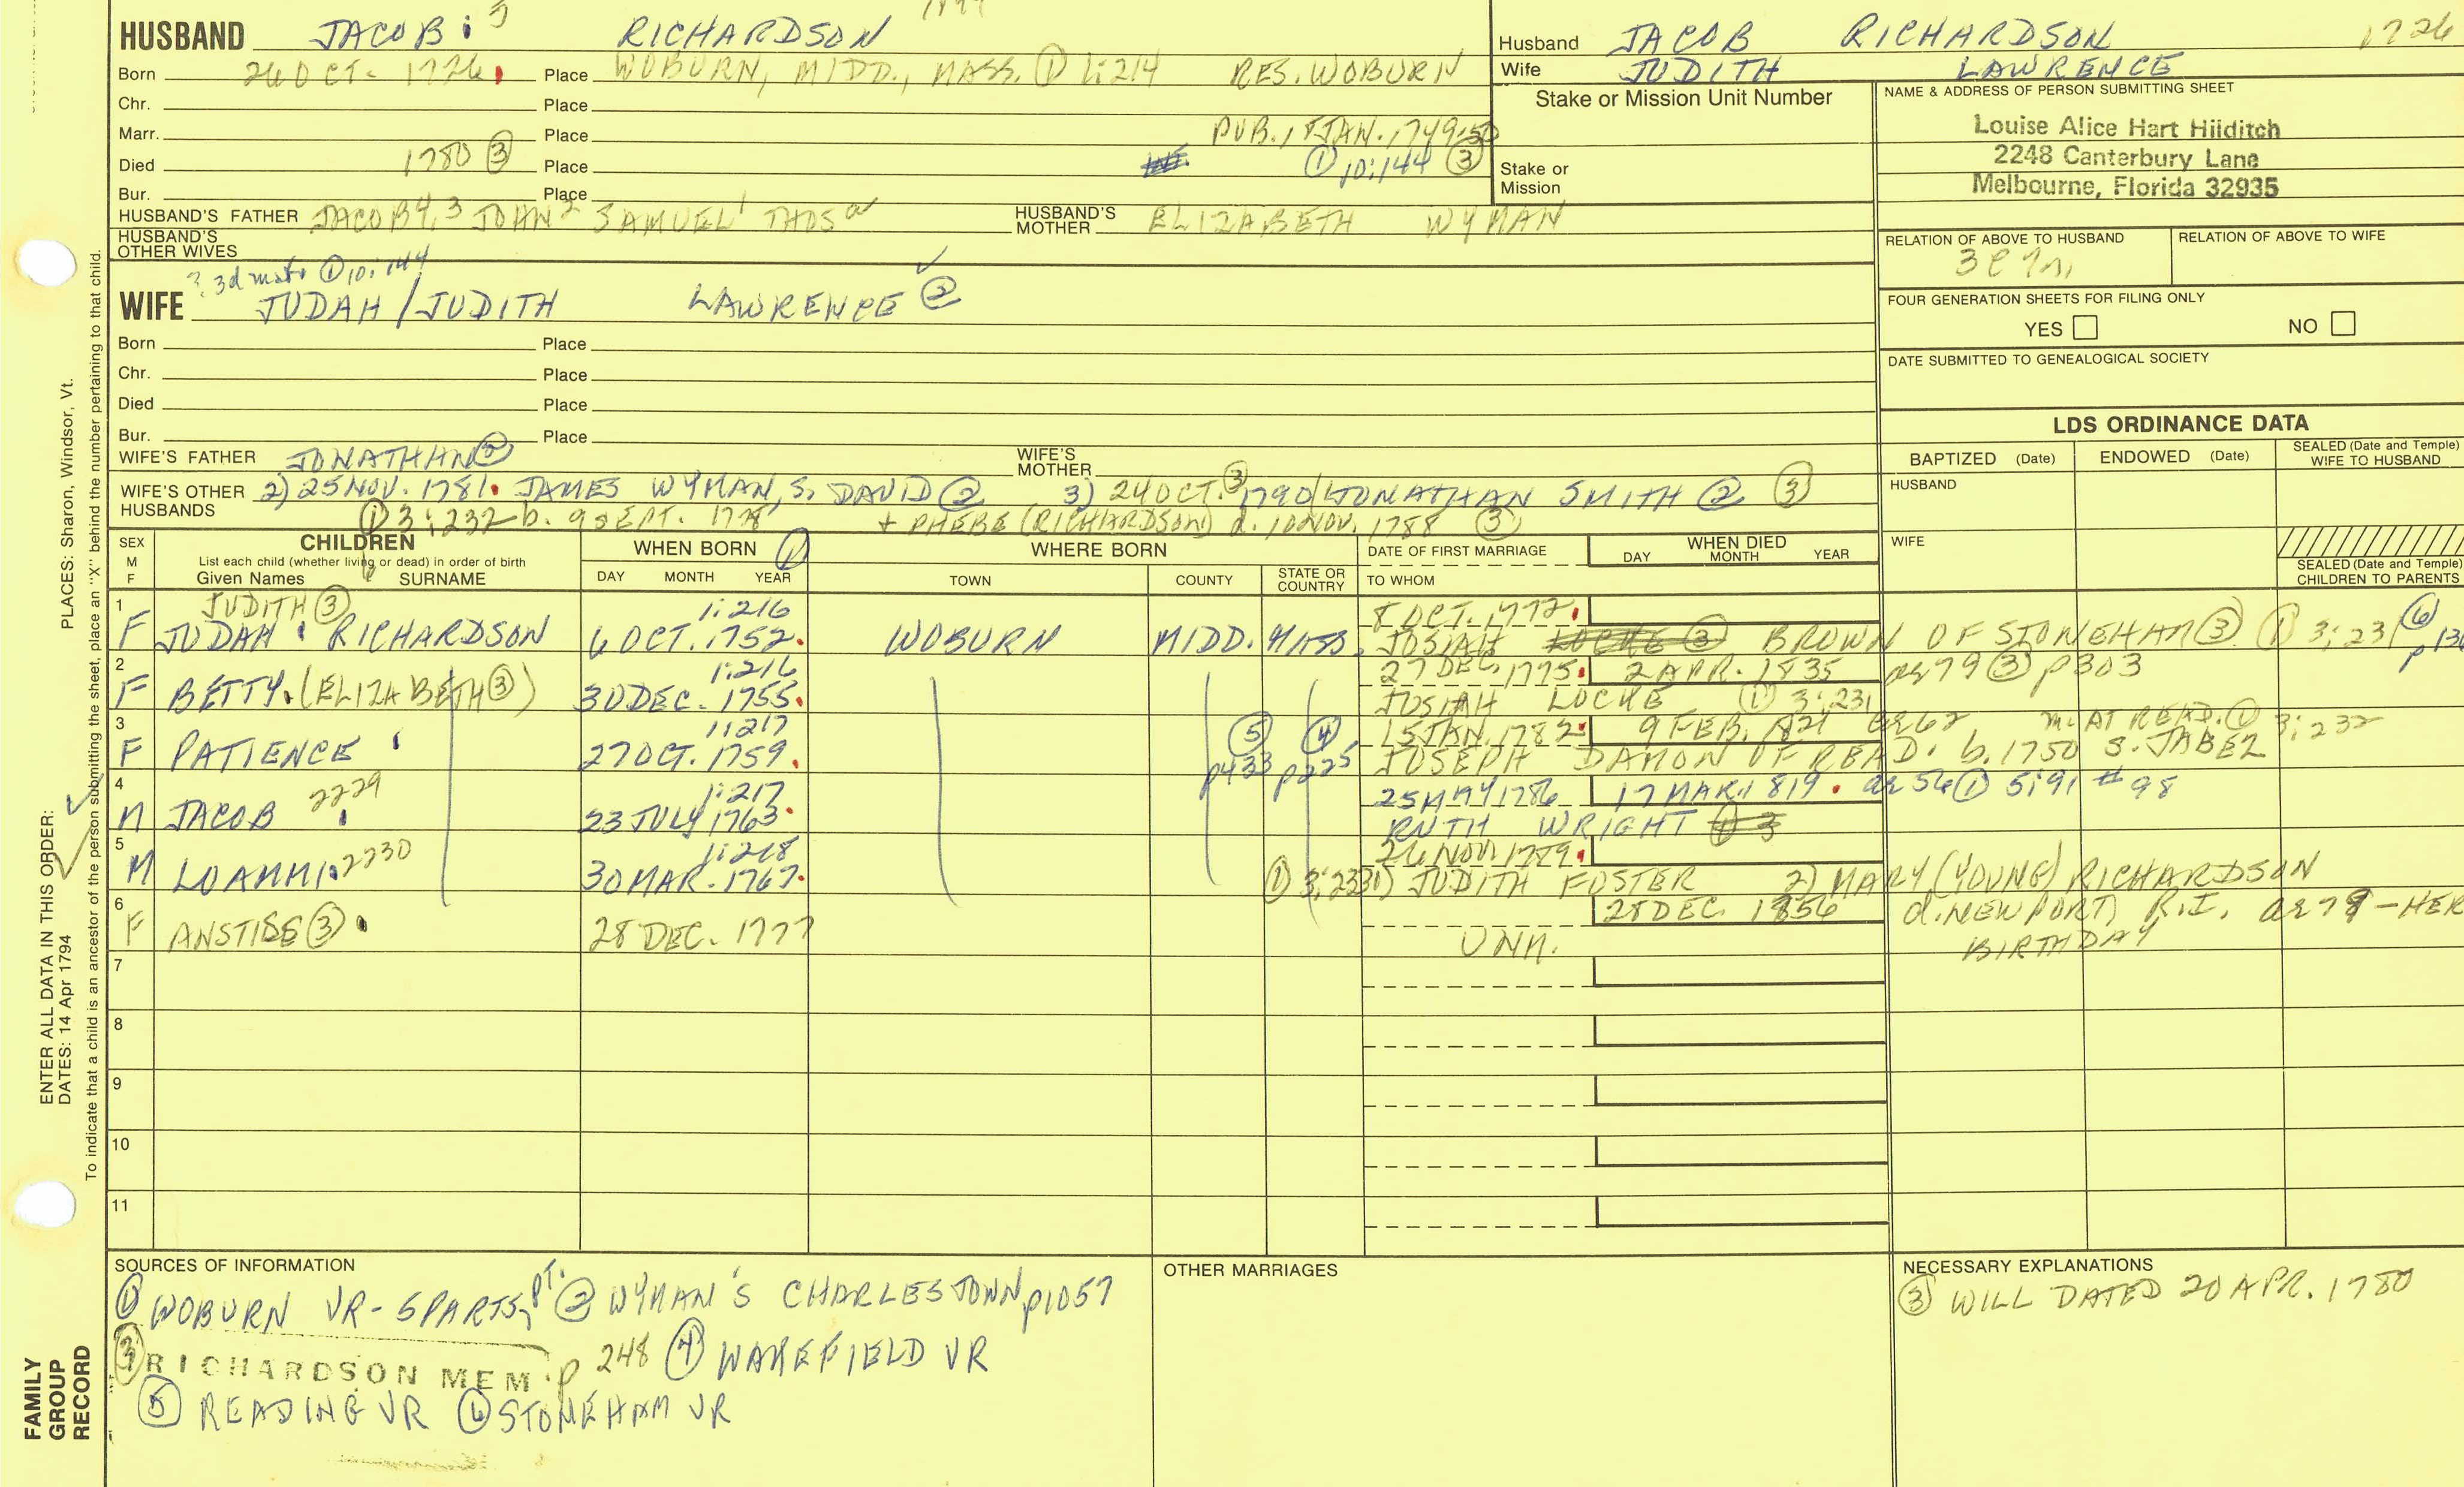 HUSBAND JACOB 5 RICHARDSON
Born 26 OCT. 1726. Place WOBURN, MIDD., MASS. ① 1:214 RES. WOBURN
Chr. Place
Marr. Place PUB. 18 JAN. 1749-50
Died 1780 ③ Place ① 10:144 ③
Bur. Place
HUSBAND'S FATHER JACOB 4, 3 JOHN 2 SAMUEL 1 THOS a HUSBAND'S MOTHER ELIZABETH WYMAN
HUSBAND'S OTHER WIVES
?. 3d ① 10:144
WIFE JUDAH / JUDITH LAWRENCE ②
Born Place
Chr. Place
Died Place
Bur. Place
WIFE'S FATHER JONATHAN ② WIFE'S MOTHER
WIFE'S OTHER HUSBANDS 2) 25 NOV. 1781. JAMES WYMAN, S. DAVID ② 3) 24 OCT. ③ 1790 JONATHAN SMITH ② ③
① 3:232 b. 9 SEPT. + PHEBE (RICHARDSON) d. 10 NOV. 1788 ③
Husband JACOB RICHARDSON 1726
Wife JUDITH LAWRENCE
Stake or Mission Unit Number
Stake or Mission
NAME & ADDRESS OF PERSON SUBMITTING SHEET
Louise Alice Hart Hilditch
2248 Canterbury Lane
Melbourne, Florida 32935
RELATION OF ABOVE TO HUSBAND RELATION OF ABOVE TO WIFE
FOUR GENERATION SHEETS FOR FILING ONLY
YES NO
DATE SUBMITTED TO GENEALOGICAL SOCIETY
LDS ORDINANCE DATA
BAPTIZED (Date) ENDOWED (Date) SEALED (Date and Temple) WIFE TO HUSBAND
HUSBAND
WIFE
SEALED (Date and Temple) CHILDREN TO PARENTS
SEX M F
CHILDREN
List each child (whether living or dead) in order of birth
Given Names SURNAME
WHEN BORN ①
DAY MONTH YEAR
WHERE BORN
TOWN COUNTY STATE OR COUNTRY
DATE OF FIRST MARRIAGE
TO WHOM
WHEN DIED
DAY MONTH YEAR
1 JUDITH ③ 1:216 8 OCT. 1772.
F JUDAH RICHARDSON 6 OCT. 1752. WOBURN MIDD. MASS. JOSIAH BROWN OF STONEHAM ③ ① 3:231 ⑥
2 1:216 27 DEC. 1775. 2 APR. 1835 ae 79 ③ p303
F BETTY. (ELIZABETH ③) 30 DEC. 1755. JOSIAH LOCKE ① 3:231
3 1:217 ⑤ ④ 15 JAN. 1782. 9 FEB. 1821 ae 62 m. AT READ. ① 3:232
F PATIENCE 27 OCT. 1759. p433 p225 JOSEPH DAMON OF READ. b. 1750 S. JABEZ
4 2229 1:217 25 MAY 1786 17 MAR. 1819. ae 56 ① 5:91 #98
M JACOB 23 JULY 1763. RUTH WRIGHT
5 2230 1:218 26 NOV. 1789.
M LOAMMI. 30 MAR. 1767. ① 3:233 1) JUDITH FOSTER 2) MARY (YOUNG) RICHARDSON
6 28 DEC. 1856 d. NEWPORT, R.I. ae 79 - HER
F ANSTISS ③ 28 DEC. 1777 UNM. BIRTHDAY
7
8
9
10
11
SOURCES OF INFORMATION
① WOBURN VR - 5 PARTS, PT. ② WYMAN'S CHARLESTOWN p1057
③ RICHARDSON MEM. p 248 ④ WAKEFIELD VR
⑤ READING VR ⑥ STONEHAM VR
OTHER MARRIAGES
NECESSARY EXPLANATIONS
③ WILL DATED 20 APR. 1780
PLACES: Sharon, Windsor, Vt.
To indicate that a child is an ancestor of the person submitting the sheet, place an "X" behind the number pertaining to that child.
ENTER ALL DATA IN THIS ORDER:
DATES: 14 Apr 1794
FAMILY GROUP RECORD